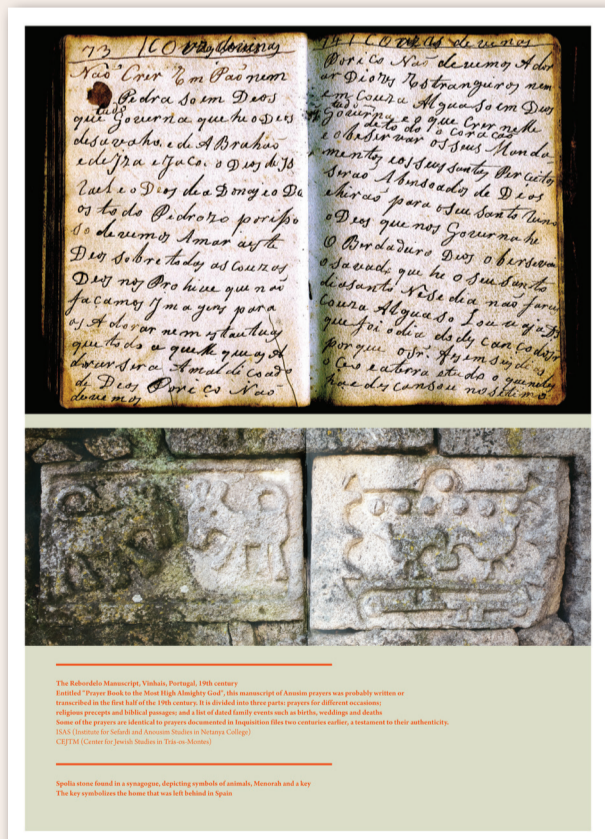 73 / Couzas devinas
Não Crer Em Pao nem
Pedra so em Deos
que tudo Governa que he o Deos
de Abraho
e de Iza e Jaco. o Dios de Is
rael e o Dios de a Donay e o De
os todo Pedrozo por isso
so devemos Amar a este
Deos sobre todas as Couzas
Deos nos Prohive que não
façamos Imagens para
as Adorar nem estautuas
que todo a quelle que as A
dorar sera Amaldicoado
de Deos Poriço Não
devemos
74 / Couzas devinas
Poriço Não devemos Ador
ar Diozes Estrangeiros nem
em Couza Algua so em Dios
que tudo Governa e o que Crer nelle
de todo o coração
observar os seus Manda
mentos e os seus santos Perceitos
serão Abensoados de Deos
e hirão para o seu santo Reino
o Deos que nos Governa he
O Berdadeiro Dios o bersevar
o savado que he o seu santo
dia santo Nese dia não faras
Couza Algua so Louvar a D
que foi o dia do descanco do Sr
porque o sr. Asem seis dias
o Ceo e a terra e tudo o que neles
ha e descansou no setimo
The Rebordelo Manuscript, Vinhais, Portugal, 19th century
Entitled "Prayer Book to the Most High Almighty God", this manuscript of Anusim prayers was probably written or
transcribed in the first half of the 19th century. It is divided into three parts: prayers for different occasions;
religious precepts and biblical passages; and a list of dated family events such as births, weddings and deaths
Some of the prayers are identical to prayers documented in Inquisition files two centuries earlier, a testament to their authenticity.
ISAS (Institute for Sefardi and Anousim Studies in Netanya College)
CEJTM (Center for Jewish Studies in Trás-os-Montes)
Spolia stone found in a synagogue, depicting symbols of animals, Menorah and a key
The key symbolizes the home that was left behind in Spain